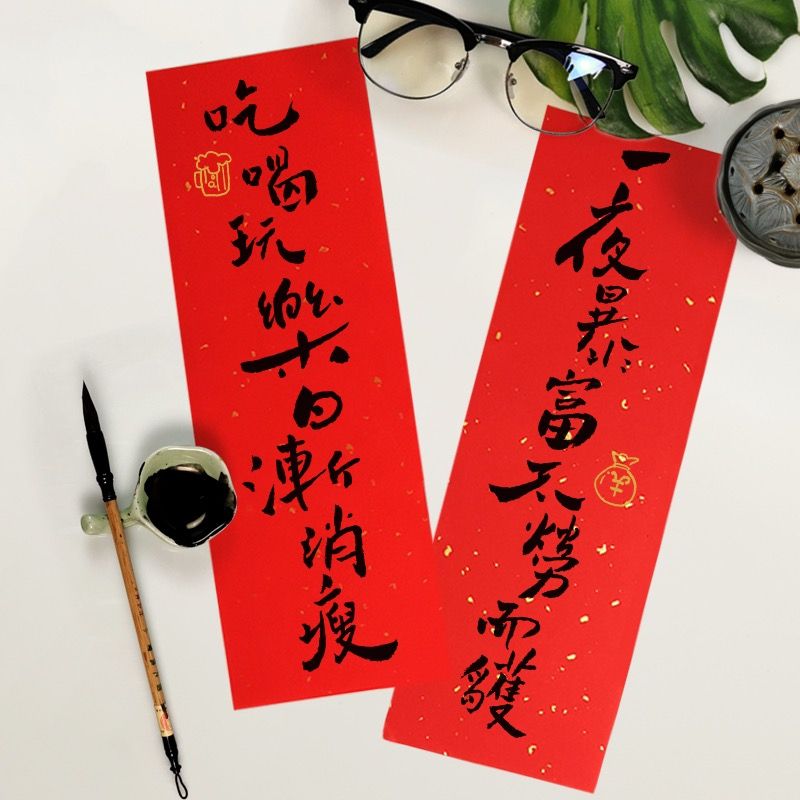 一夜暴富不勞而獲
吃喝玩樂日漸消瘦